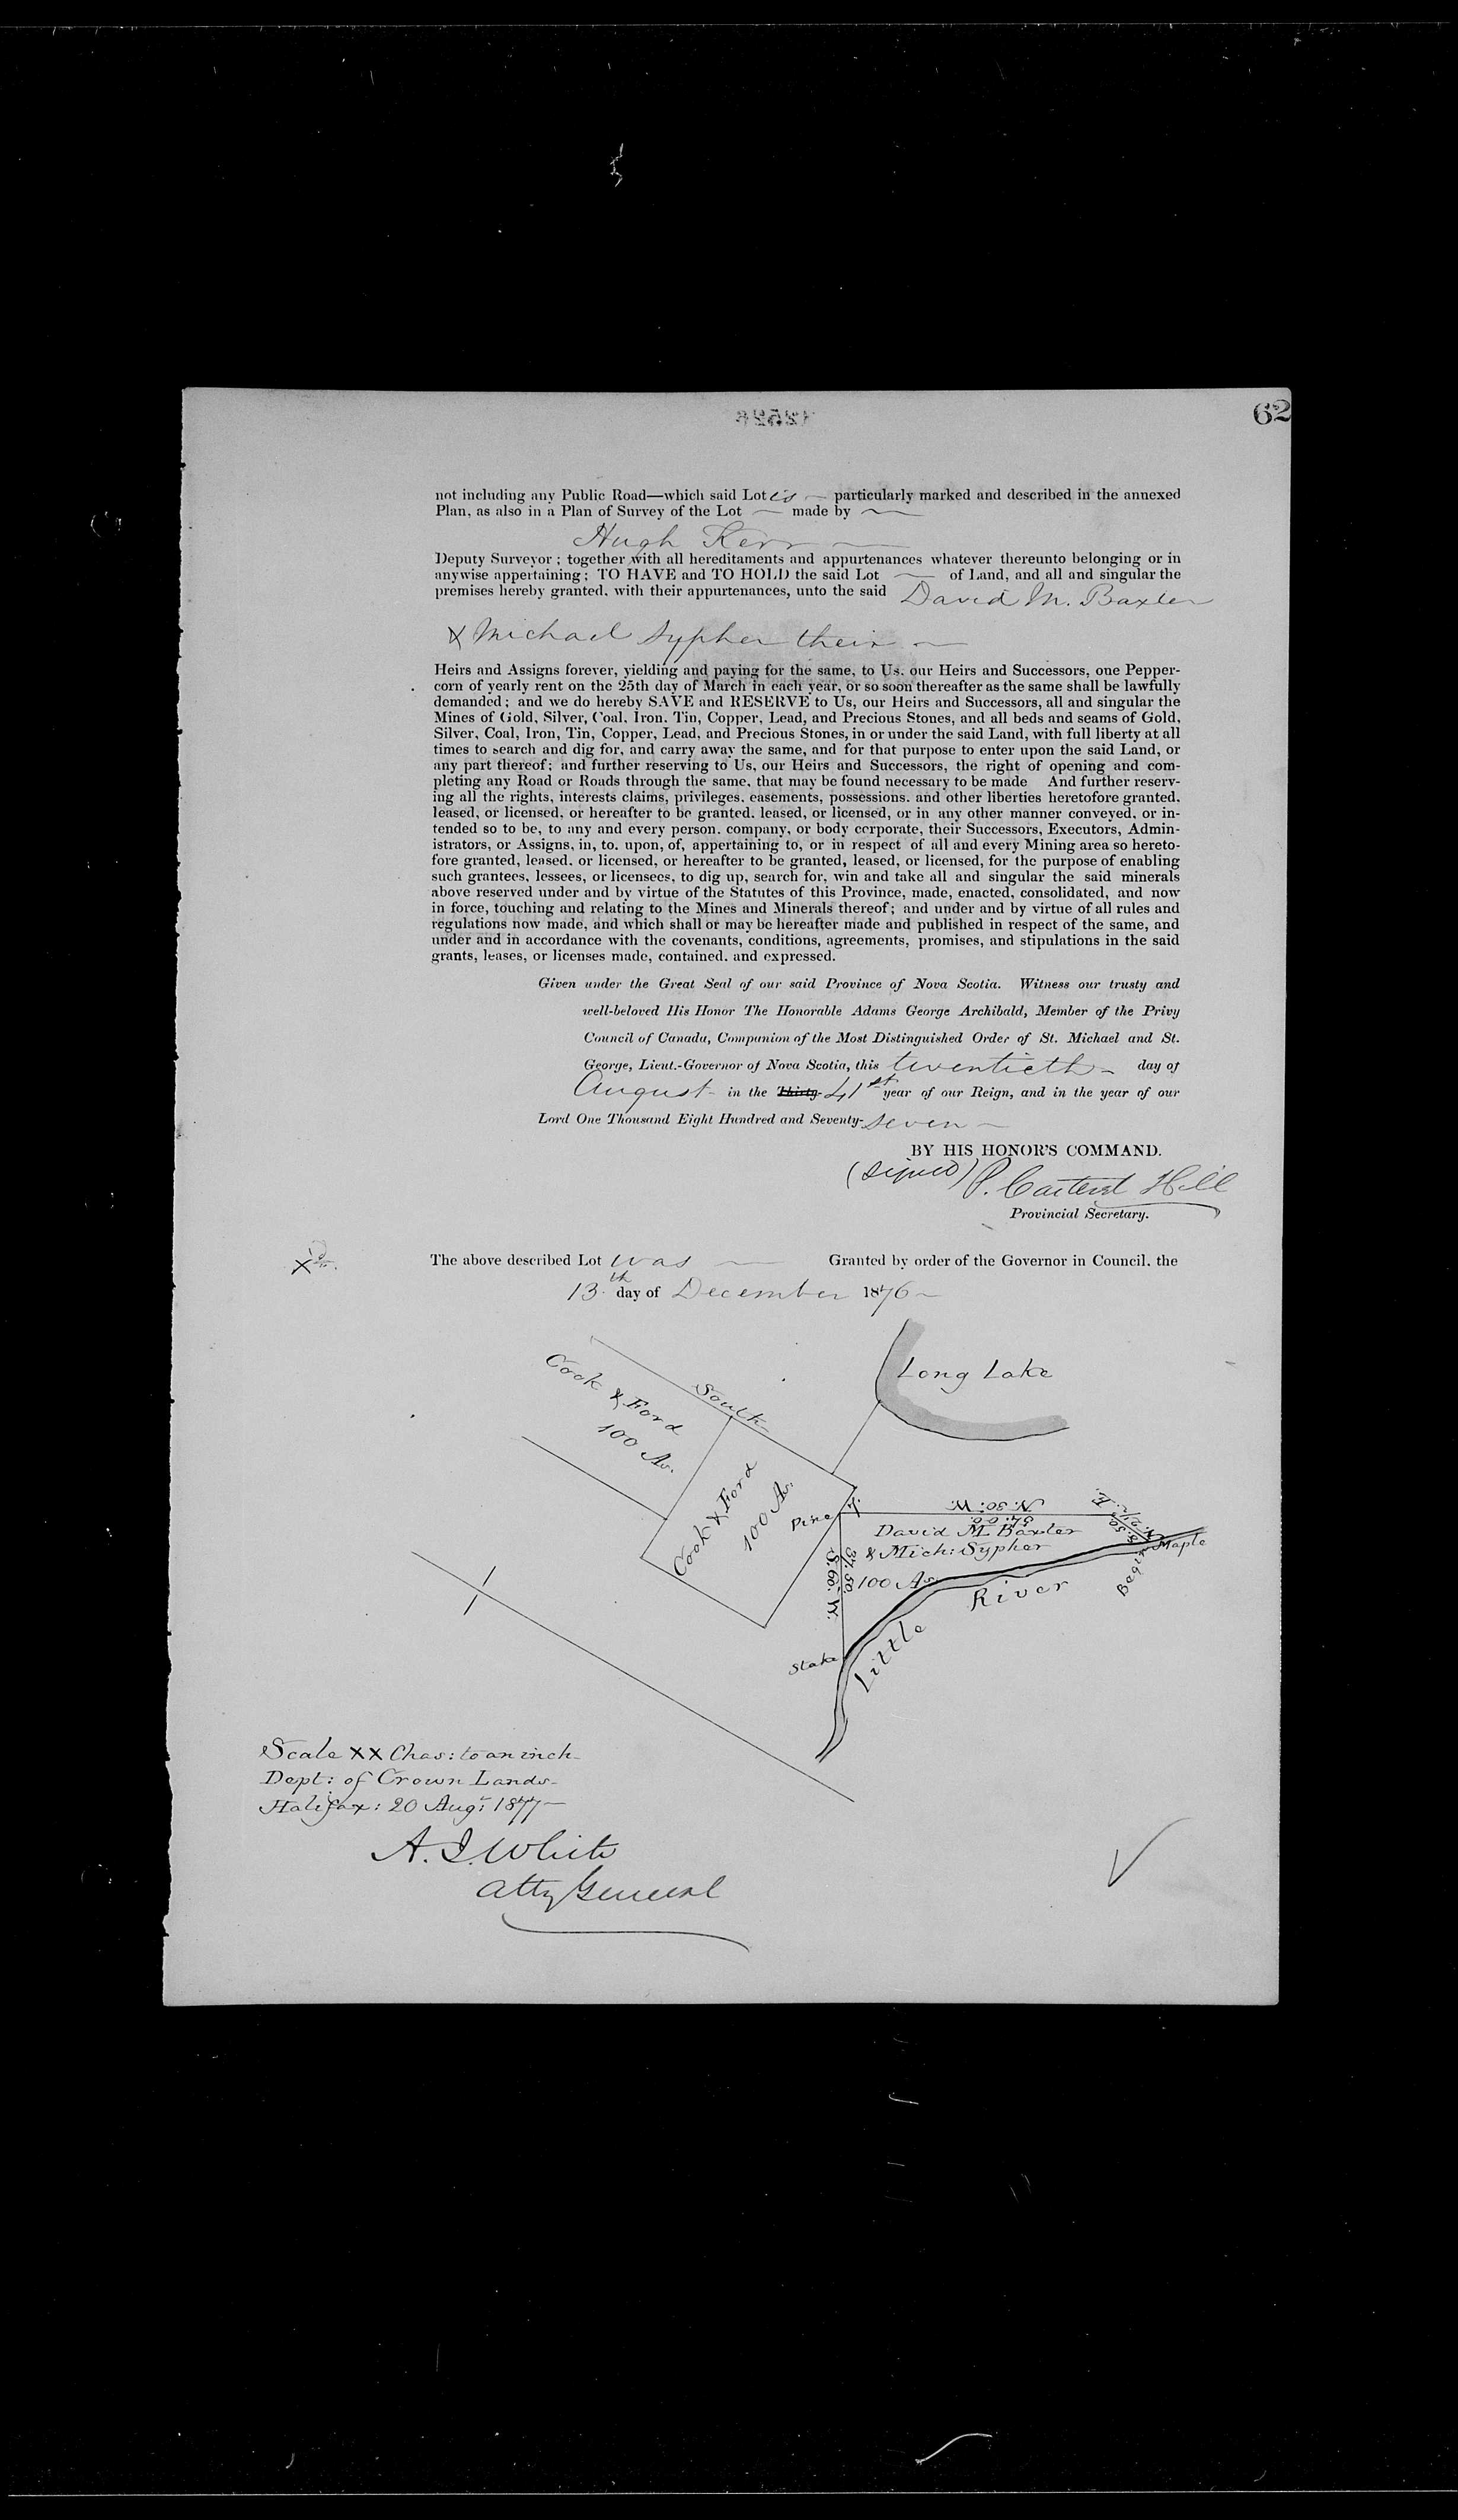 62
not including any Public Road—which said Lot is — particularly marked and described in the annexed
Plan, as also in a Plan of Survey of the Lot — made by —
Hugh Kerr —
Deputy Surveyor ; together with all hereditaments and appurtenances whatever thereunto belonging or in
anywise appertaining ; TO HAVE and TO HOLD the said Lot — of Land, and all and singular the
premises hereby granted. with their appurtenances, unto the said David M. Baxter
& Michael Sypher their —
Heirs and Assigns forever, yielding and paying for the same, to Us. our Heirs and Successors, one Pepper-
corn of yearly rent on the 25th day of March in each year, or so soon thereafter as the same shall be lawfully
demanded ; and we do hereby SAVE and RESERVE to Us, our Heirs and Successors, all and singular the
Mines of Gold, Silver, Coal, Iron. Tin, Copper, Lead, and Precious Stones, and all beds and seams of Gold,
Silver, Coal, Iron, Tin, Copper, Lead, and Precious Stones, in or under the said Land, with full liberty at all
times to search and dig for, and carry away the same, and for that purpose to enter upon the said Land, or
any part thereof ; and further reserving to Us, our Heirs and Successors, the right of opening and com-
pleting any Road or Roads through the same, that may be found necessary to be made And further reserv-
ing all the rights, interests claims, privileges. easements, possessions. and other liberties heretofore granted.
leased, or licensed, or hereafter to be granted. leased, or licensed, or in any other manner conveyed, or in-
tended so to be, to any and every person. company, or body corporate, their Successors, Executors, Admin-
istrators, or Assigns, in, to. upon, of, appertaining to, or in respect of all and every Mining area so hereto-
fore granted, leased. or licensed, or hereafter to be granted, leased, or licensed, for the purpose of enabling
such grantees, lessees, or licensees, to dig up, search for, win and take all and singular the said minerals
above reserved under and by virtue of the Statutes of this Province, made, enacted, consolidated, and now
in force, touching and relating to the Mines and Minerals thereof ; and under and by virtue of all rules and
regulations now made, and which shall or may be hereafter made and published in respect of the same, and
under and in accordance with the covenants, conditions, agreements, promises, and stipulations in the said
grants, leases, or licenses made, contained. and expressed.
Given under the Great Seal of our said Province of Nova Scotia. Witness our trusty and
well-beloved His Honor The Honorable Adams George Archibald, Member of the Privy
Council of Canada, Companion of the Most Distinguished Order of St. Michael and St.
George, Lieut.-Governor of Nova Scotia, this twentieth — day of
August in the Thirty 41st year of our Reign, and in the year of our
Lord One Thousand Eight Hundred and Seventy-seven —
BY HIS HONOR'S COMMAND.
(signed) P. Carteret Hill
Provincial Secretary.
The above described Lot was — Granted by order of the Governor in Council. the
13th day of December 1876 —
Long Lake
Cook & Ford
100 As.
South
Cook & Ford
100 As.
Pine
N. 30: W.
54.00.
David M. Baxter
& Mich: Sypher
100 As.
37.50.
S. 60: W.
Maple
River
Little
Stake
Scale XX Chas: to an inch
Dept: of Crown Lands
Halifax: 20 Augt 1877 —
A. J. White
Atty General